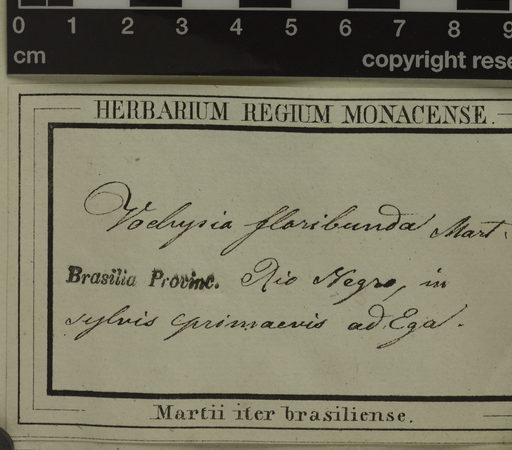 0 1 2 3 4 5 6 7 8 9
cm copyright rese
HERBARIUM REGIUM MONACENSE.
Vochysia floribunda Mart.
Brasilia Provinc. Rio Negro, in
sylvis primaevis ad Ega.
Martii iter brasiliense.